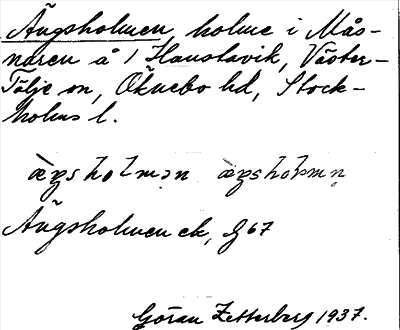 Ängsholmen, holme i Mås-
naren å / Hanstavik, Väster-
Tälje sn, Öknebo hd, Stock-
holms l.
Ängsholmen ek, g 67
Göran Zetterberg 1937.